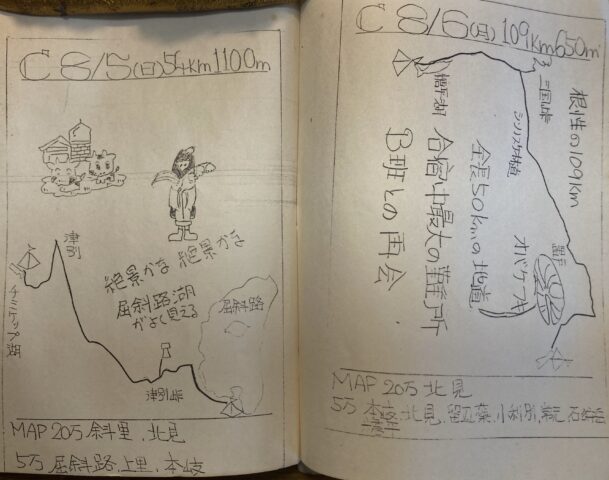 C 8/5(日)54km1100m
津別
絶景かな 絶景かな
屈斜路湖
がよく見える
屈斜路
チミケップ湖
津別峠
MAP 20万 斜里, 北見
5万 屈斜路, 上里, 本岐
C 8/6(月)109km650m
根性の109km
三国峠
置戸
全長50kmの地道
糠平湖
合宿中最大の難所
B班との再会
MAP 20万 北見
5万 本岐, 北見, 留辺蘂, 小利別, 常元, 石狩岳